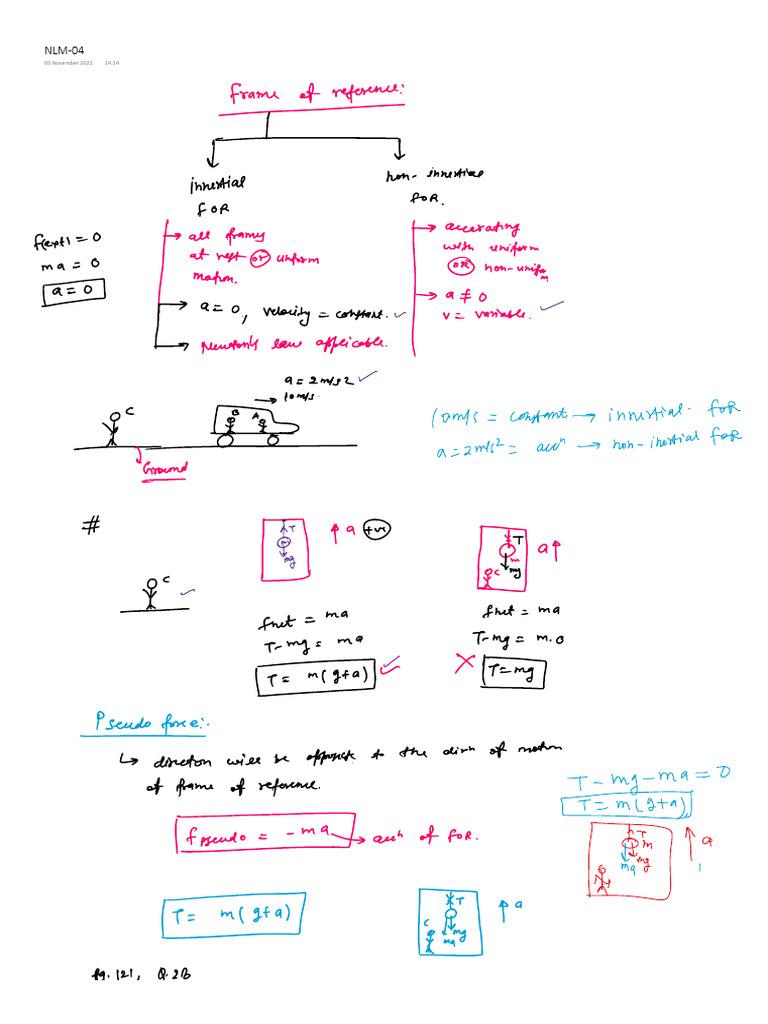 NLM-04
05 November 2022 14:14
Frame of reference:
innertial
FOR
non-innertial
FOR.
f(ext) = 0
ma = 0
a = 0
all frames
at rest or uniform
motion.
a = 0, velocity = constant.
Newton's law applicable.
accerating
with uniform
OR non-uniform
a ≠ 0
v = variable.
a = 2m/s2
10m/s
C
B A
Ground
10m/s = constant → innertial FOR
a = 2m/s² = accⁿ → non-inertial FOR
#
C
T
m
mg
a +ve
T
m
C mg
a
fnet = ma
T-mg = ma
T = m(g+a)
fnet = ma
T-mg = m.0
T=mg
Pseudo force:-
direction will be opposite to the dirⁿ of motion
of frame of reference.
fpseudo = -ma → accⁿ of FOR.
T - mg - ma = 0
T = m(g+a)
T
m
mg
ma
a
T = m(g+a)
T
C
mg
ma
a
Pg. 121, Q.2B